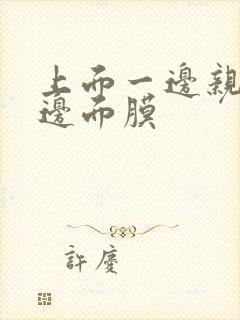 上而一邊親
邊而膜
許慶